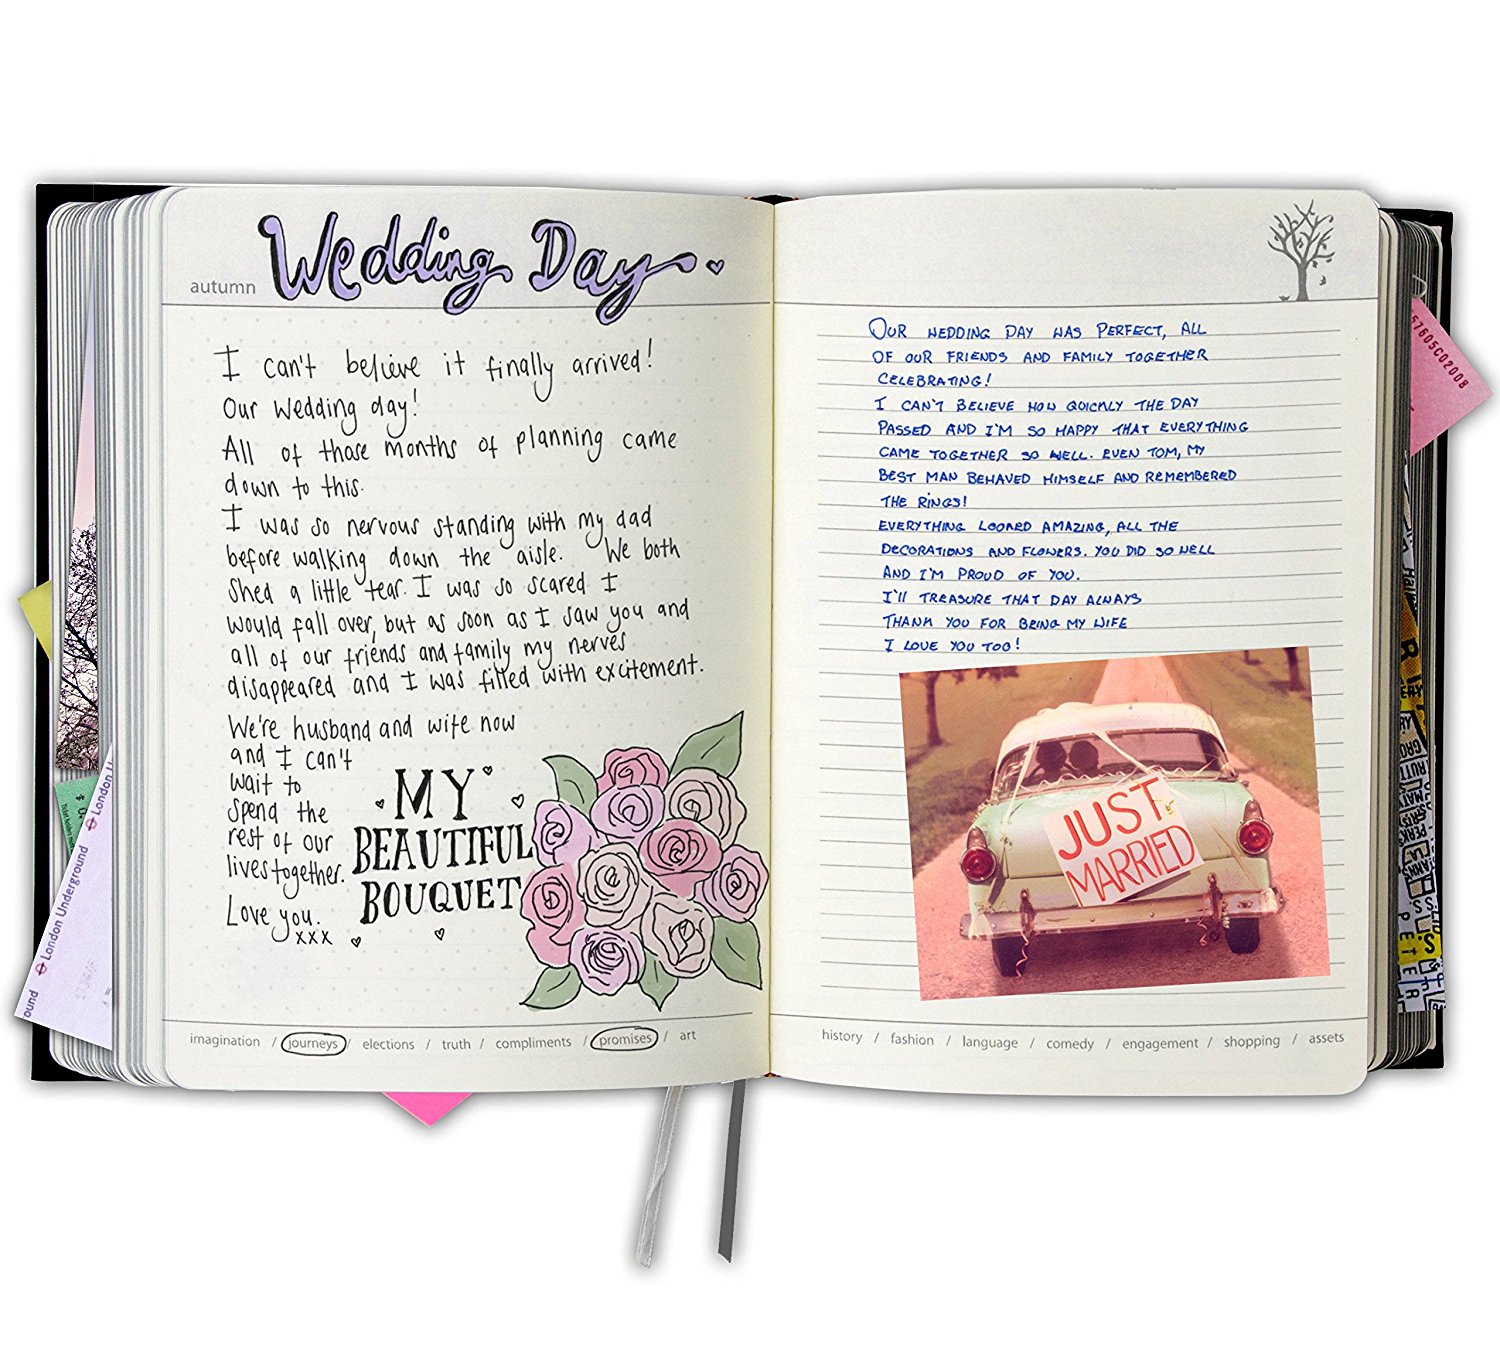 autumn
Wedding Day
I can't believe it finally arrived!
Our wedding day!
All of those months of planning came
down to this.
I was so nervous standing with my dad
before walking down the aisle. We both
shed a little tear. I was so scared I
would fall over, but as soon as I saw you and
all of our friends and family my nerves
disappeared and I was filled with excitement.
We're husband and wife now
and I can't
wait to
spend the
rest of our
lives together.
Love you.
xxx
MY
BEAUTIFUL
BOUQUET
imagination / journeys / elections / truth / compliments / promises / art
OUR WEDDING DAY WAS PERFECT, ALL
OF OUR FRIENDS AND FAMILY TOGETHER
CELEBRATING!
I CAN'T BELIEVE HOW QUICKLY THE DAY
PASSED AND I'M SO HAPPY THAT EVERYTHING
CAME TOGETHER SO WELL. EVEN TOM, MY
BEST MAN BEHAVED HIMSELF AND REMEMBERED
THE RINGS!
EVERYTHING LOOKED AMAZING, ALL THE
DECORATIONS AND FLOWERS. YOU DID SO WELL
AND I'M PROUD OF YOU.
I'LL TREASURE THAT DAY ALWAYS
THANK YOU FOR BEING MY WIFE
I LOVE YOU TOO!
JUST
MARRIED
history / fashion / language / comedy / engagement / shopping / assets
London U
London Underground
ound
57605C02008